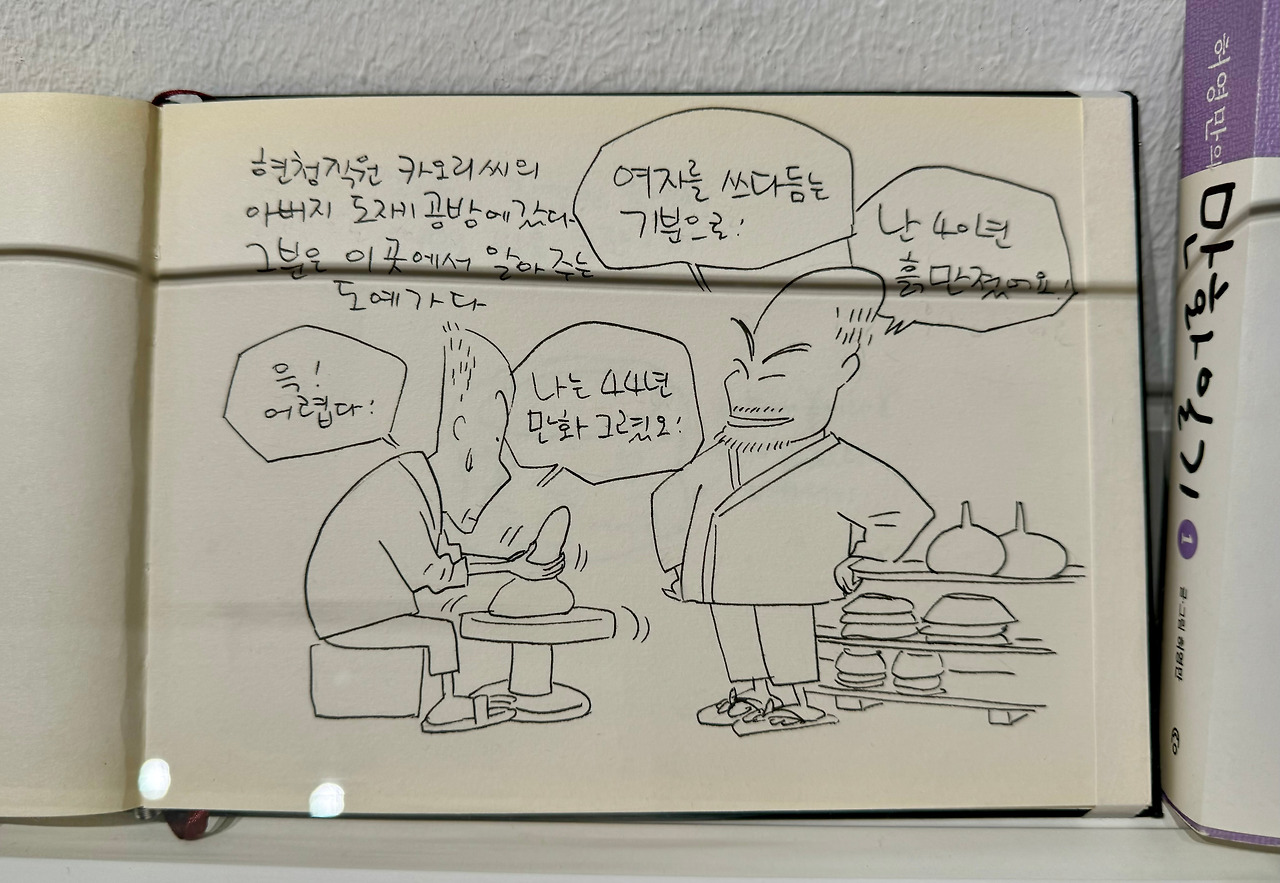 현청직원 카오리씨의
아버지 도자기 공방에 갔다.
그분은 이 곳에서 알아 주는
도예가다
여자를 쓰다듬는
기분으로!
난
흙 만졌어요!
윽!
어렵다!
나는 44년
만화 그렸오!
허영만의
만화일기
1
글·그림 허영만